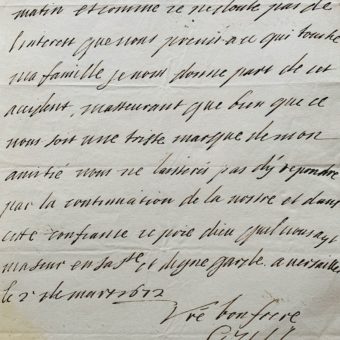 matin et comme je ne doute pas de
l'interest que vous prenés a ce qui touche
ma famille je vous donne part de cet
accident, m'asseurant que bien que ce
vous soit une triste marque de mon
amitié vous ne laisserés pas d'y repondre
par la continuation de la vostre et dans
cette confiance je prie dieu qu'il vous ayt
ma seur en sa ste et digne garde. a versailles
le 2 de mars 1672
Vre bon frere